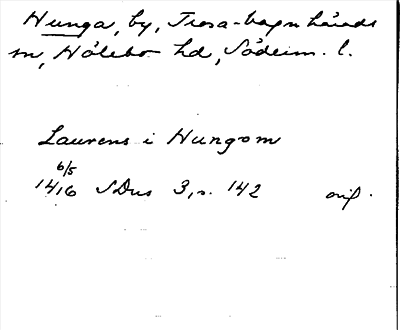 Hunga, by, Trosa-Vagnhärads
sn, Hölebo hd, Söderm. l.
Laurens i Hungom
6/5
1416 SDns 3, s. 142 orig.